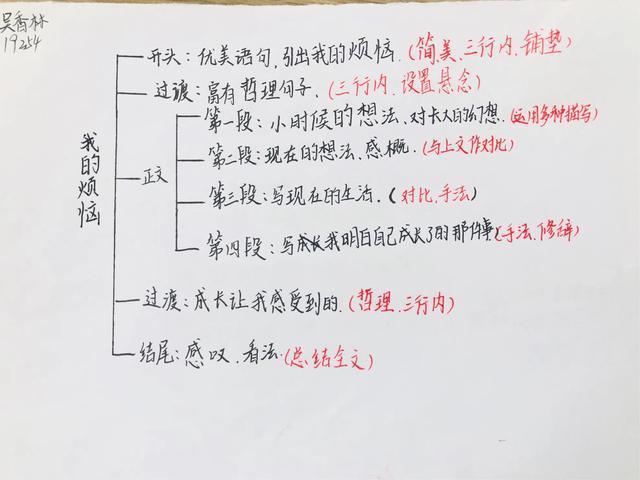 吴香林
19254
开头：优美语句，引出我的烦恼.（简、美、三行内、铺垫）
过渡：富有哲理句子.（三行内、设置悬念）
第一段：小时候的想法、对长大的幻想.（运用多种描写）
我的烦恼
第二段：现在的想法、感概.（与上文作对比）
正文
第三段：写现在的生活.（对比、手法）
第四段：写成长我明白自己成长了的那件事（手法、修辞）
过渡：成长让我感受到的.（哲理、三行内）
结尾：感叹、看法.（总结全文）